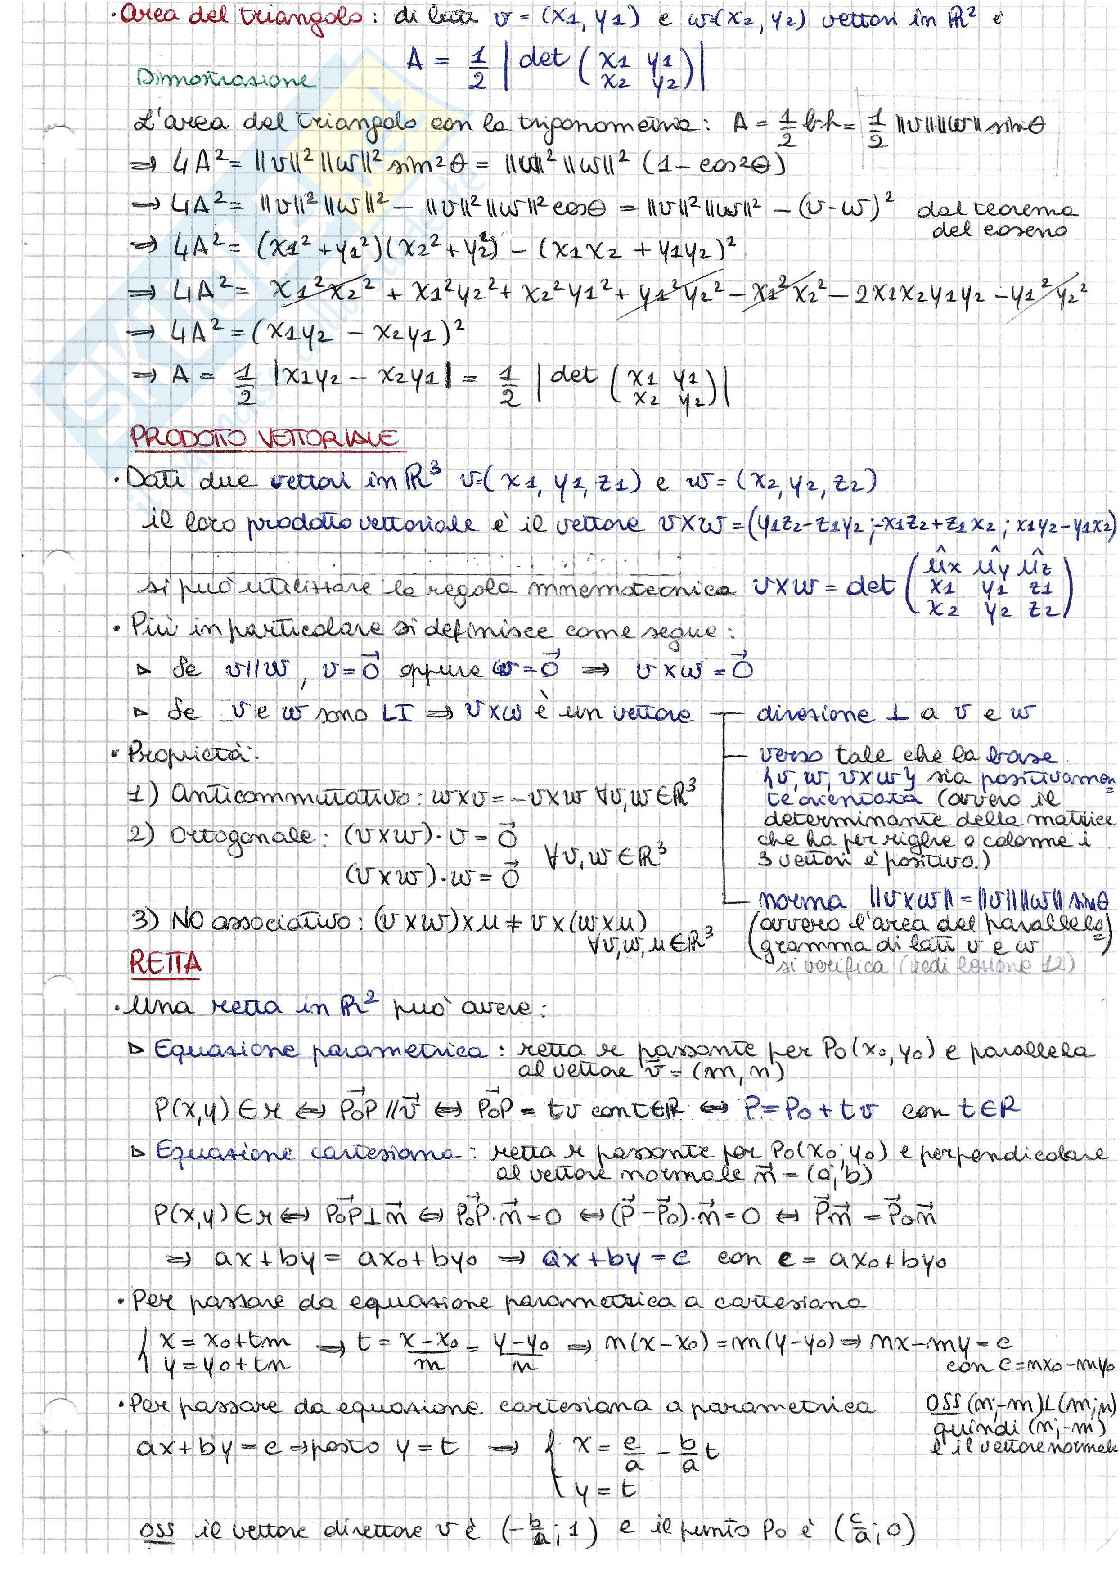 ·Area del triangolo: di lati v=(x1,y1) e w=(x2,y2) vettori in ℝ² è
A = 1/2 |det (x1 y1 / x2 y2)|
Dimostrazione
L'area del triangolo con la trigonometria: A = 1/2 b·h = 1/2 ||v|| ||w|| sinθ
⇒ 4A² = ||v||² ||w||² sin²θ = ||v||² ||w||² (1-cos²θ)
⇒ 4A² = ||v||² ||w||² - ||v||² ||w||² cosθ = ||v||² ||w||² - (v-w)² dal teorema
del coseno
⇒ 4A² = (x1²+y1²)(x2²+y2²) - (x1x2 + y1y2)²
⇒ 4A² = x1²x2² + x1²y2² + x2²y1² + y1²y2² - x1²x2² - 2x1x2y1y2 - y1²y2²
⇒ 4A² = (x1y2 - x2y1)²
⇒ A = 1/2 |x1y2 - x2y1| = 1/2 |det (x1 y1 / x2 y2)|
PRODOTTO VETTORIALE
·Dati due vettori in ℝ³ v=(x1, y1, z1) e w=(x2, y2, z2)
il loro prodotto vettoriale è il vettore v×w=(y1z2-z1y2;-x1z2+z1x2; x1y2-y1x2)
si può utilizzare la regola mnemotecnica v×w = det (ûx ûy ûz / x1 y1 z1 / x2 y2 z2)
· Più in particolare si definisce come segue:
▷ Se v//w, v=0⃗ oppure w=0⃗ ⇒ v×w=0⃗
▷ Se v e w sono LI ⇒ v×w è un vettore — direzione ⊥ a v e w
verso tale che la base
{v, w, v×w} sia positivamen
te orientata (ovvero il
determinante della matrice
che ha per righe o colonne i
3 vettori è positivo.)
norma ||v×w||=||v|| ||w|| sinθ
(ovvero l'area del parallelo)
(gramma di lati v e w
si verifica (vedi lezione 12)
· Proprietà:
1) Anticommutativo: w×v=-v×w ∀v,w∈ℝ³
2) Ortogonale: (v×w)·v=0⃗
∀v,w∈ℝ³
(v×w)·w=0⃗
3) NO associativo: (v×w)×u ≠ v×(w×u)
∀v,w,u∈ℝ³
RETTA
·Una retta in ℝ² può avere:
▷ Equazione parametrica: retta r passante per P0(x0,y0) e parallela
al vettore v⃗=(m,n)
P(x,y)∈r ⇔ P0P⃗ // v⃗ ⇔ P0P⃗ = tv con t∈ℝ ⇔ P=P0+tv con t∈ℝ
▷ Equazione cartesiana: retta r passante per P0(x0,y0) e perpendicolare
al vettore normale n⃗=(a,b)
P(x,y)∈r ⇔ P0P⃗ ⊥ n⃗ ⇔ P0P⃗·n⃗=0 ⇔ (P⃗-P⃗0)·n⃗=0 ⇔ P⃗n⃗ = P⃗0n⃗
⇒ ax+by = ax0+by0 ⇒ ax+by=c con c=ax0+by0
·Per passare da equazione parametrica a cartesiana
{x=x0+tm / y=y0+tn ⇒ t = (x-x0)/m = (y-y0)/n ⇒ n(x-x0)=m(y-y0) ⇒ nx-my=c
con c=nx0-my0
·Per passare da equazione cartesiana a parametrica
OSS (n;-m)⊥(m;n)
quindi (n;-m)
è il vettore normale
ax+by=c ⇒ posto y=t ⇒ {x = c/a - b/a t
y=t
OSS il vettore direttore v è (-b/a; 1) e il punto P0 è (c/a; 0)